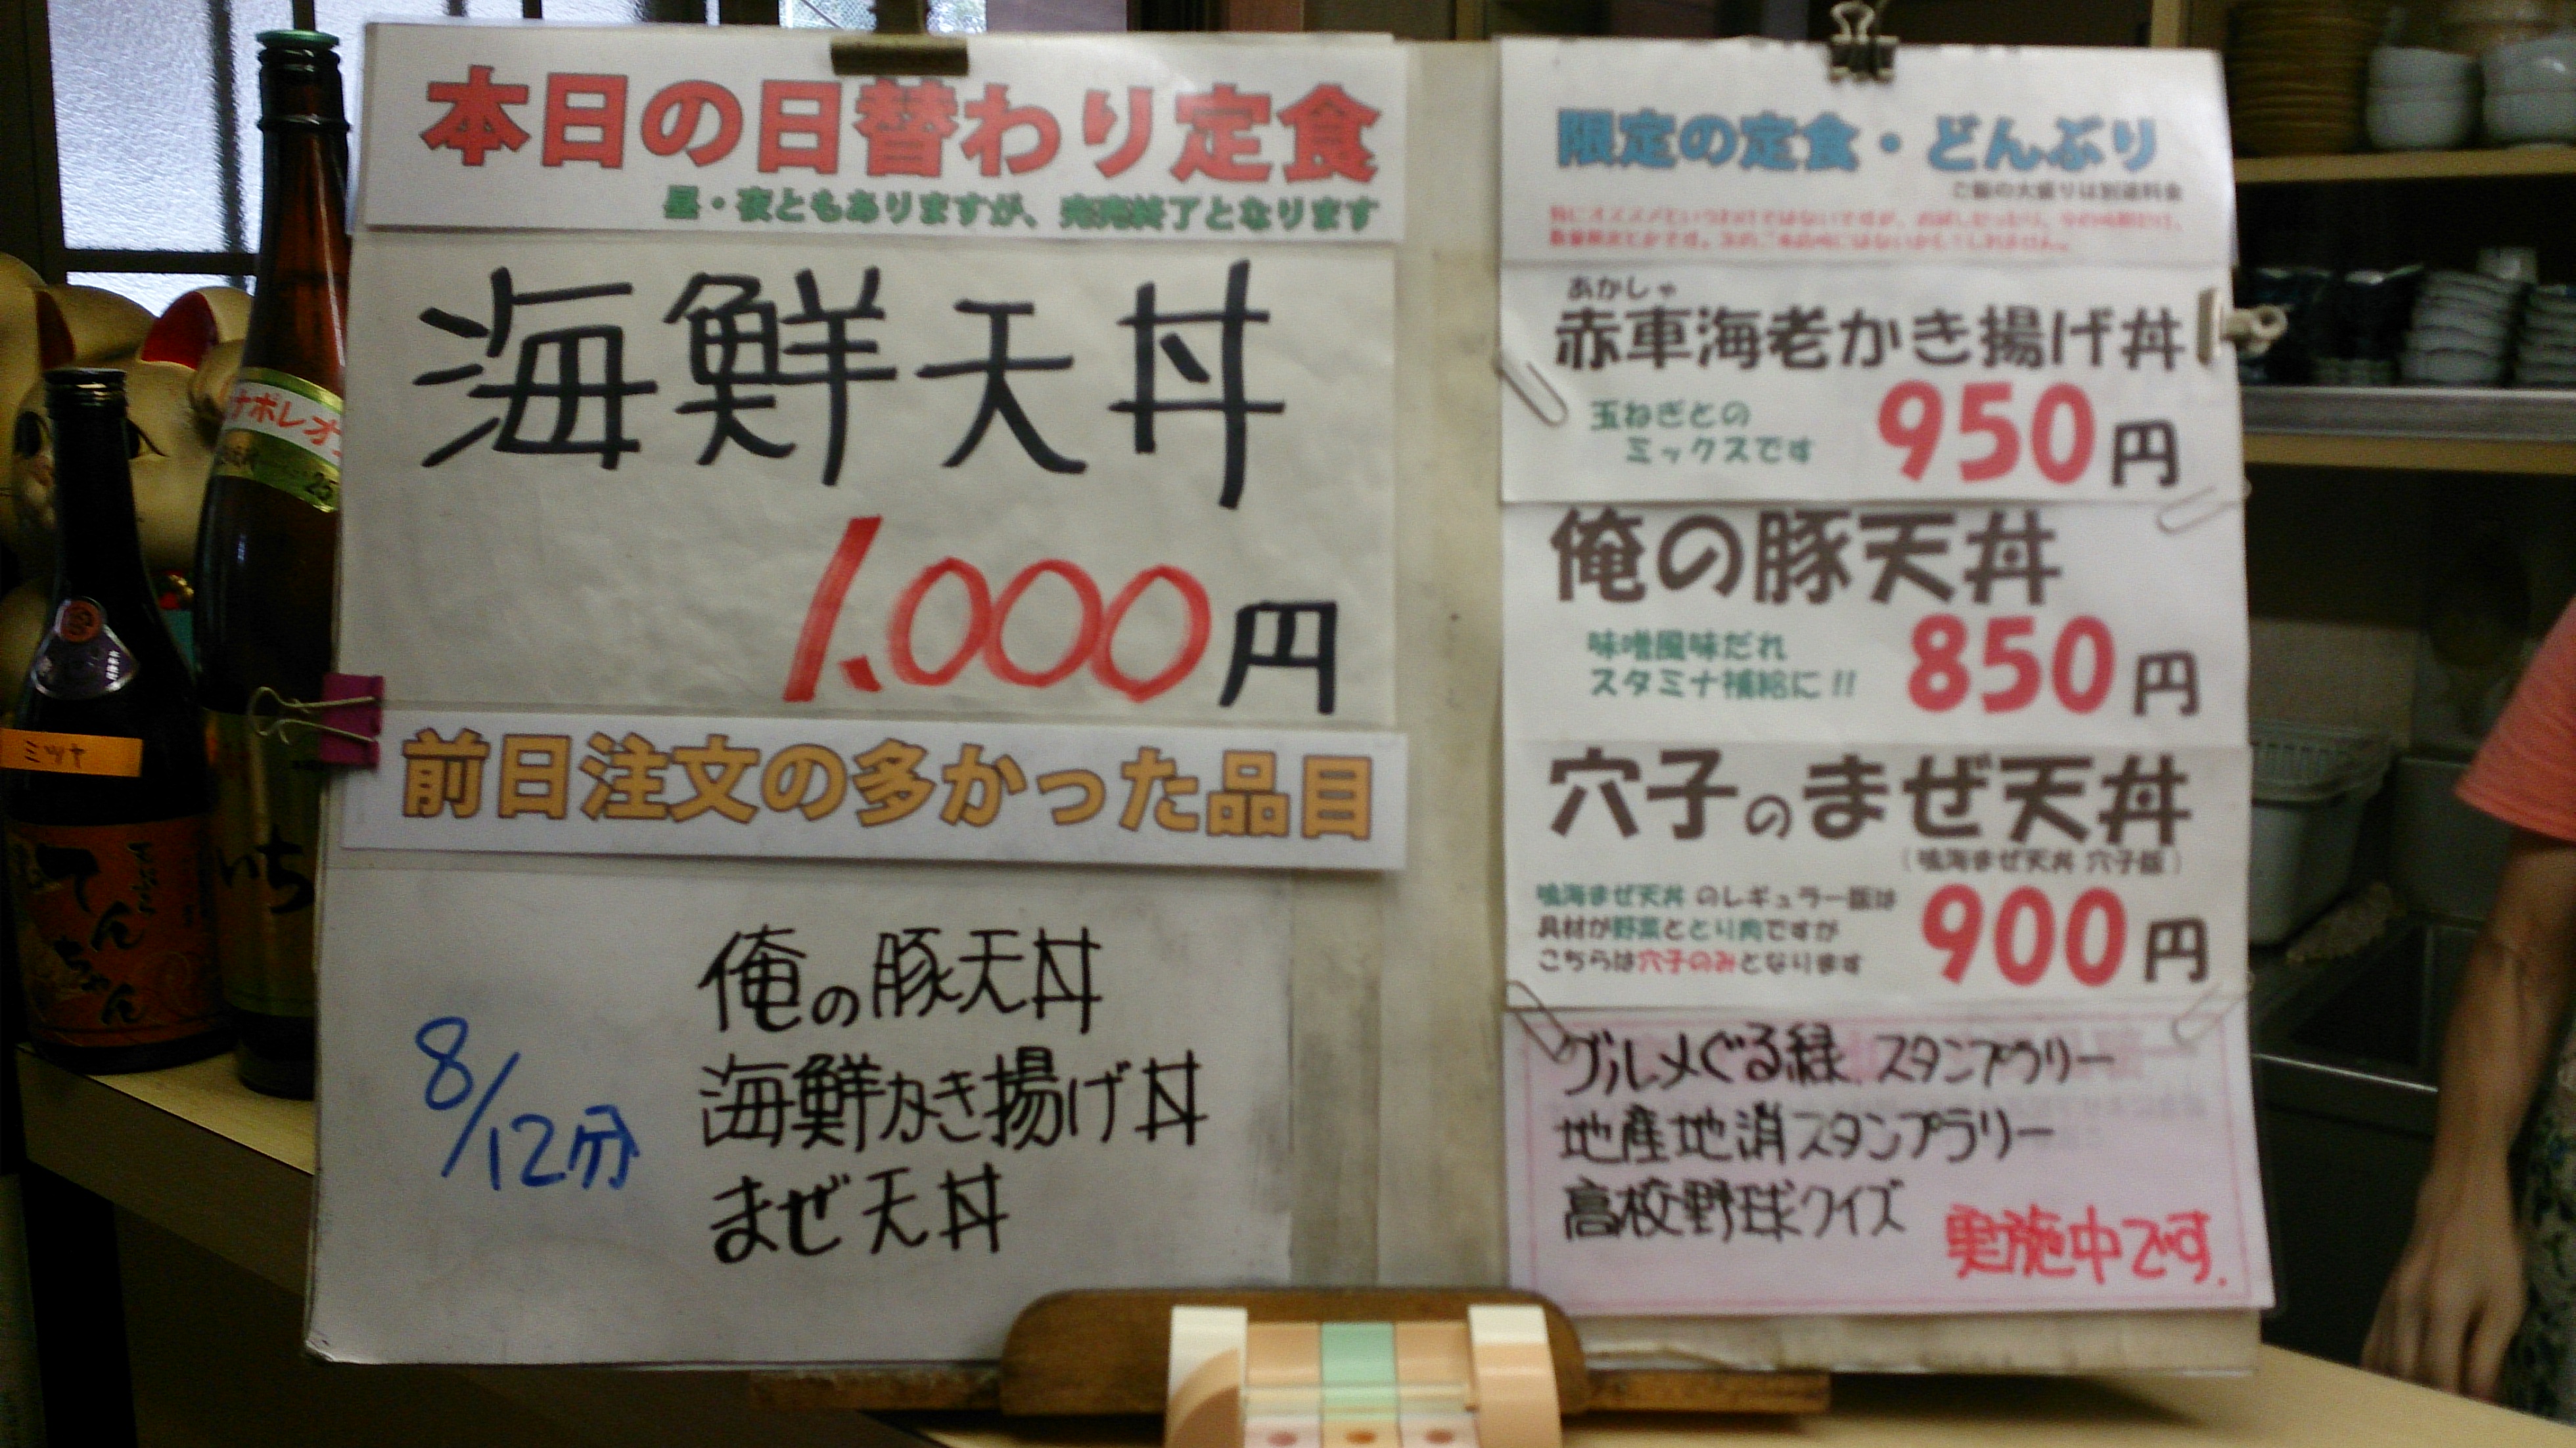 本日の日替わり定食
昼・夜ともありますが、完売終了となります
海鮮天丼
1.000円
前日注文の多かった品目
8/12分
俺の豚天丼
海鮮かき揚げ丼
まぜ天丼
限定の定食・どんぶり
ご飯の大盛りは別途料金
あかしゃ
赤車海老かき揚げ丼
玉ねぎとの
ミックスです
950円
俺の豚天丼
味噌風味だれ
スタミナ補給に!!
850円
穴子のまぜ天丼
(鳴海まぜ天丼 穴子版)
鳴海まぜ天丼 のレギュラー版は
具材が野菜ととり肉ですが
こちらは穴子のみとなります
900円
グルメぐる緑 スタンプラリー
地産地消スタンプラリー
高校野球クイズ
実施中です.
ナポレオ
25
ミツヤ
てんちゃん
いち